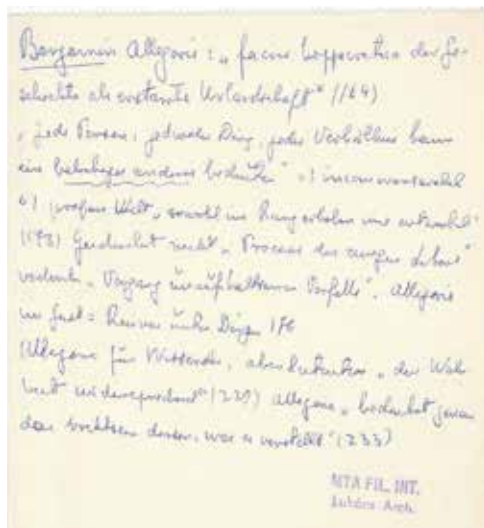 Benjamin Allegorie: „facies hippocratica der Ge-
schichte als erstarrte Urlandschaft" (164)
„jede Person, jedwedes Ding, jedes Verhältnis kann
ein beliebiges anderes bedeuten" a)
b) profane Welt „sowohl im Rang erhoben wie entwertet"
(193) Geschichte nicht „Process des ewigen Lebens"
„Vorgang unaufhaltsamen Verfalls". Allegorie
im Dingen 176
Allegorie für „der
" (229) Allegorie „bedeutet genau
das Nichtsein dessen, was es vorstellt" (233)
MTA FIL. INT.
Lukács Arch.